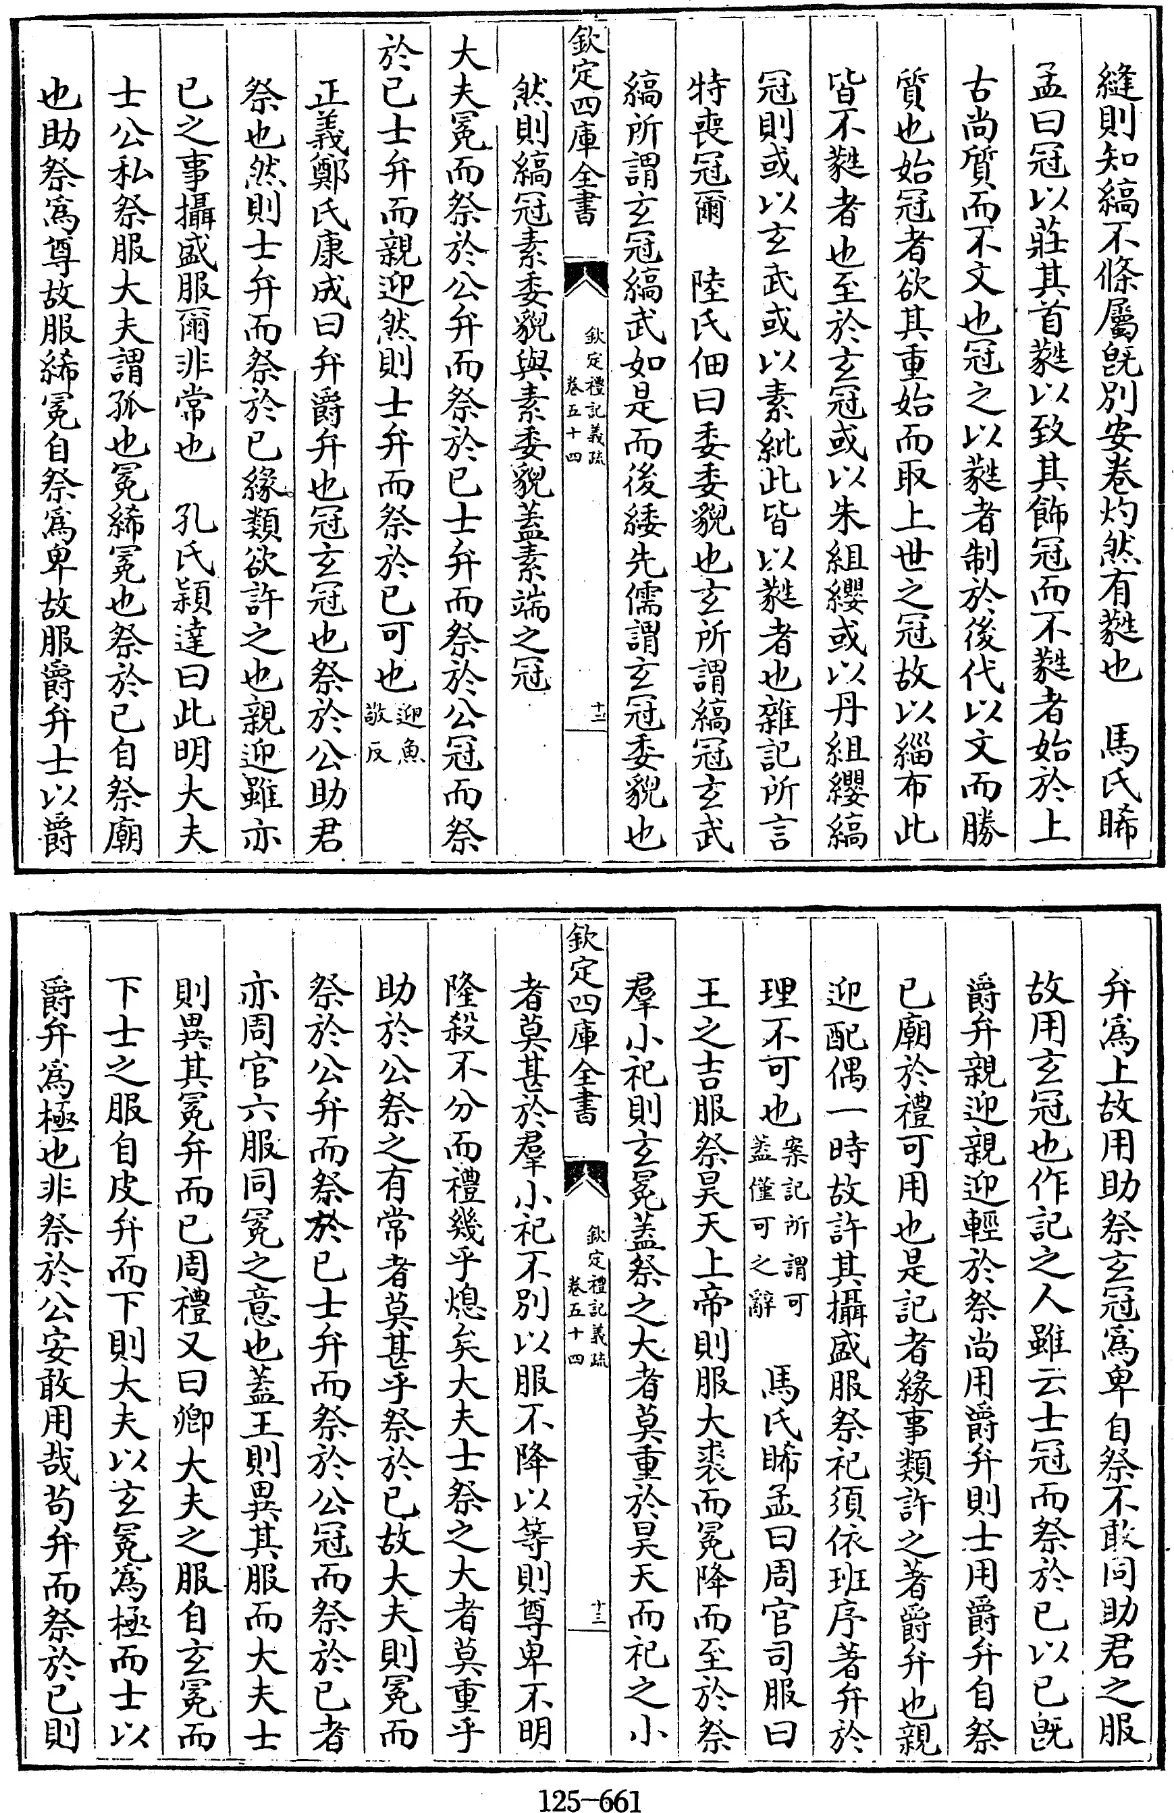 縫則知縞不條屬旣別安卷灼然有蕤也　馬氏睎
孟曰冠以莊其首蕤以致其飾冠而不蕤者始於上
古尚質而不文也冠之以蕤者制於後代以文而勝
質也始冠者欲其重始而取上世之冠故以緇布此
皆不蕤者也至於玄冠或以朱組纓或以丹組纓縞
冠則或以玄武或以素紕此皆以蕤者也雜記所言
特喪冠爾　陸氏佃曰委委貌也玄所謂縞冠玄武
縞所謂玄冠縞武如是而後緌先儒謂玄冠委貌也
欽定四庫全書
欽定禮記義疏
卷五十四
十二
然則縞冠素委貌與素委貌蓋素端之冠
大夫冕而祭於公弁而祭於已士弁而祭於公冠而祭
於已士弁而親迎然則士弁而祭於已可也迎魚
敬反
正義鄭氏康成曰弁爵弁也冠玄冠也祭於公助君
祭也然則士弁而祭於已緣類欲許之也親迎雖亦
已之事攝盛服爾非常也　孔氏穎達曰此明大夫
士公私祭服大夫謂孤也冕絺冕也祭於已自祭廟
也助祭爲尊故服絺冕自祭爲卑故服爵弁士以爵
弁爲上故用助祭玄冠爲卑自祭不敢同助君之服
故用玄冠也作記之人雖云士冠而祭於已以已旣
爵弁親迎親迎輕於祭尚用爵弁則士用爵弁自祭
已廟於禮可用也是記者緣事類許之著爵弁也親
迎配偶一時故許其攝盛服祭祀須依班序著弁於
理不可也案記所謂可
蓋僅可之辭
馬氏睎孟曰周官司服曰
王之吉服祭昊天上帝則服大裘而冕降而至於祭
羣小祀則玄冕蓋祭之大者莫重於昊天而祀之小
欽定四庫全書
欽定禮記義疏
卷五十四
十三
者莫甚於羣小祀不別以服不降以等則尊卑不明
隆殺不分而禮幾乎熄矣大夫士祭之大者莫重乎
助於公祭之有常者莫甚乎祭於已故大夫則冕而
祭於公弁而祭於已士弁而祭於公冠而祭於已者
亦周官六服同冕之意也蓋王則異其服而大夫士
則異其冕弁而已周禮又曰卿大夫之服自玄冕而
下士之服自皮弁而下則大夫以玄冕爲極而士以
爵弁爲極也非祭於公安敢用哉苟弁而祭於已則
125-661